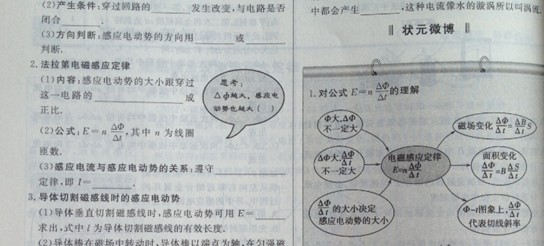 (2)产生条件:穿过回路的________发生改变,与电路是否
闭合________.
(3)方向判断:感应电动势的方向用________或________
判断.
2.法拉第电磁感应定律
(1)内容:感应电动势的大小跟穿过
这一电路的________成
正比.
(2)公式:E=n ΔΦ/Δt,其中 n 为线圈
匝数.
(3)感应电流与感应电动势的关系:遵守________
定律,即 I=________.
3.导体切割磁感线时的感应电动势
(1)导体垂直切割磁感线时,感应电动势可用 E=________
求出,式中 l 为导体切割磁感线的有效长度.
(2)导体棒在磁场中转动时,导体棒以端点为轴,在匀强磁
思考:
Δφ越大,感应电
动势也越大( )
中都会产生________,这种电流像水的漩涡所以叫涡流
状元微博
1.对公式 E=n ΔΦ/Δt 的理解
Φ大,ΔΦ
不一定大
ΔΦ大,ΔΦ/Δt
不一定大
ΔΦ/Δt 的大小决定
感应电动势的大小
电磁感应定律
E=n ΔΦ/Δt
磁场变化 ΔΦ/Δt=ΔB/Δt S
面积变化
ΔΦ/Δt=B ΔS/Δt
Φ-t图象上,ΔΦ/Δt
代表切线斜率